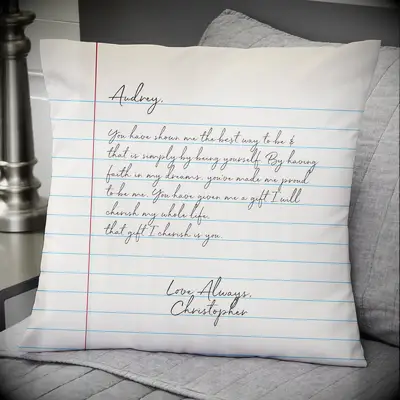 Audrey,
You have shown me the best way to be &
that is simply by being yourself. By having
faith in my dreams, you've made me proud
to be me. You have given me a gift I will
cherish my whole life,
that gift I cherish is you.
Love Always,
Christopher